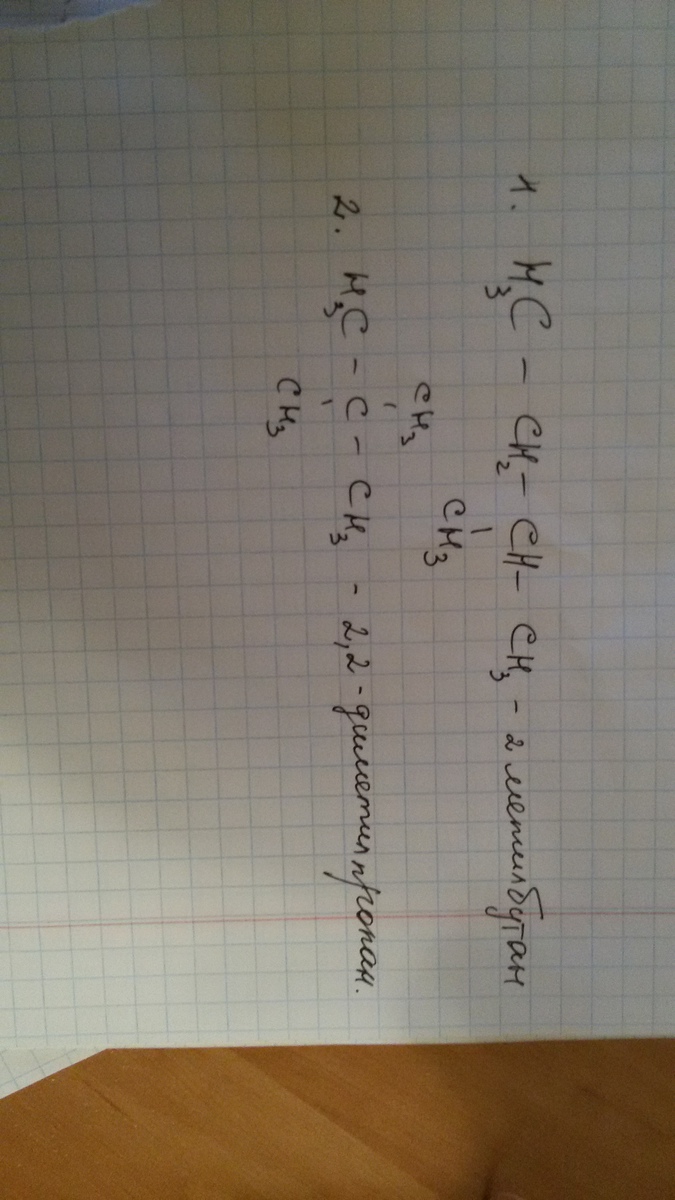 1. H₃C - CH₂ - CH - CH₃ - 2 метилбутан
CH₃
CH₃
2. H₃C - C - CH₃ - 2,2 - диметилпропан.
CH₃